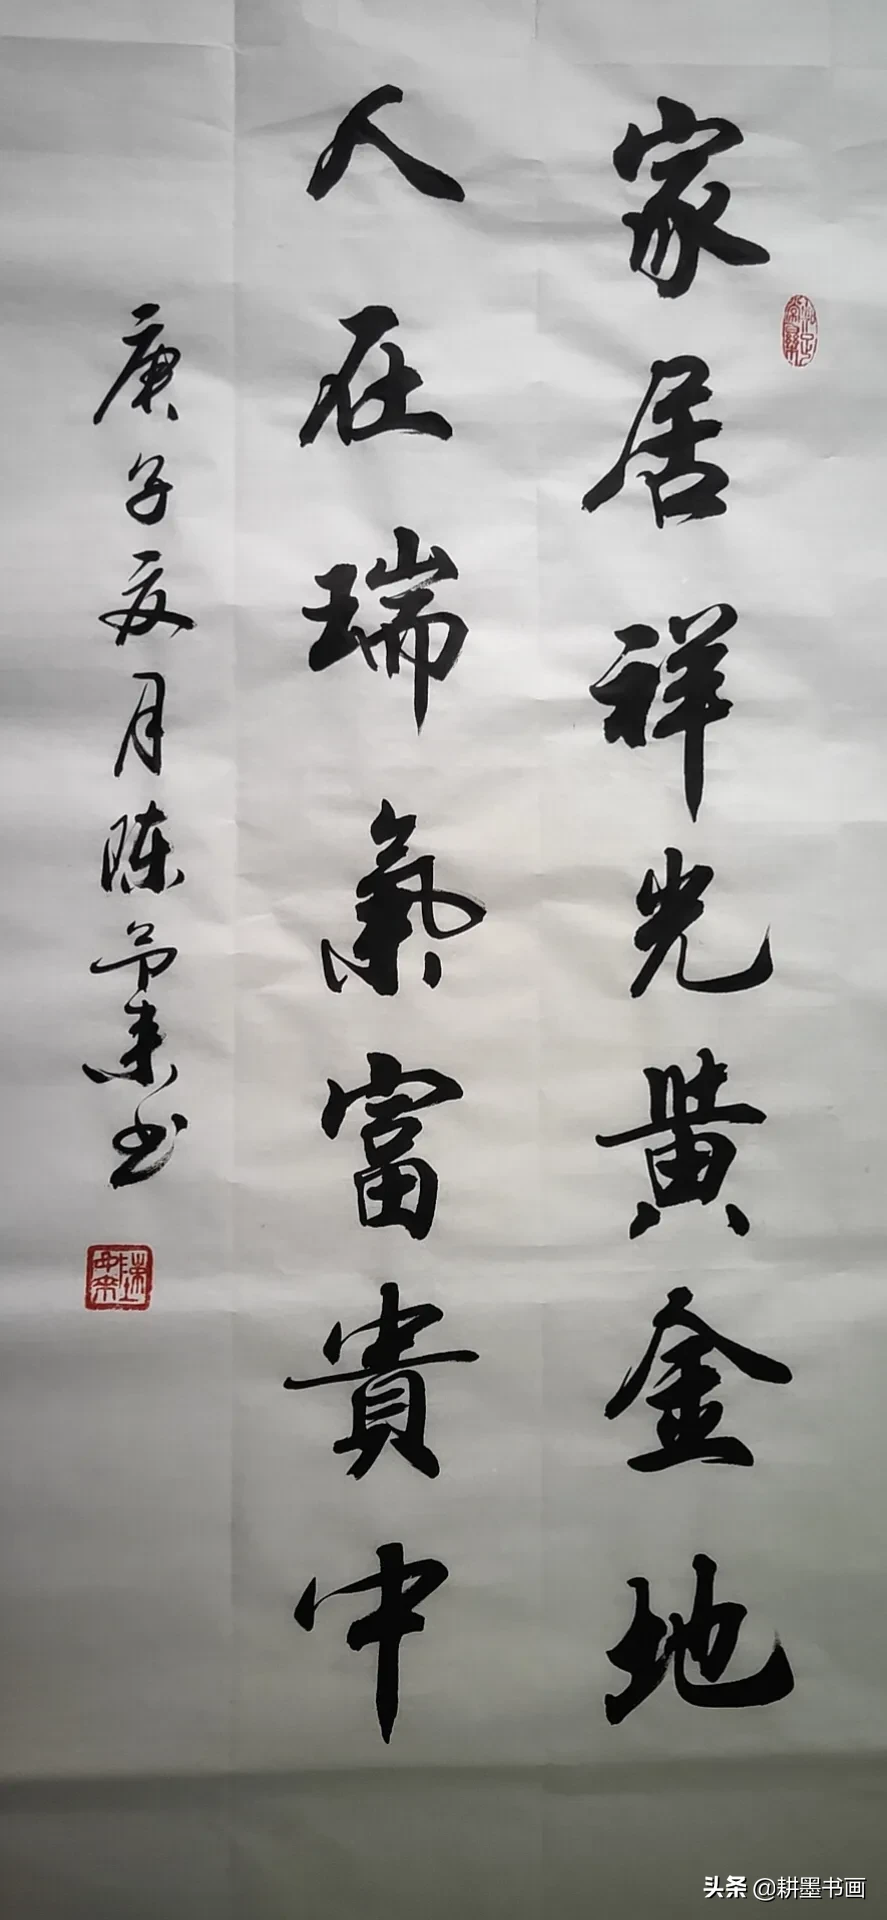 家居祥光黄金地
知足常樂
人在瑞氣富貴中
庚子夏月陈书
头条 @耕墨书画